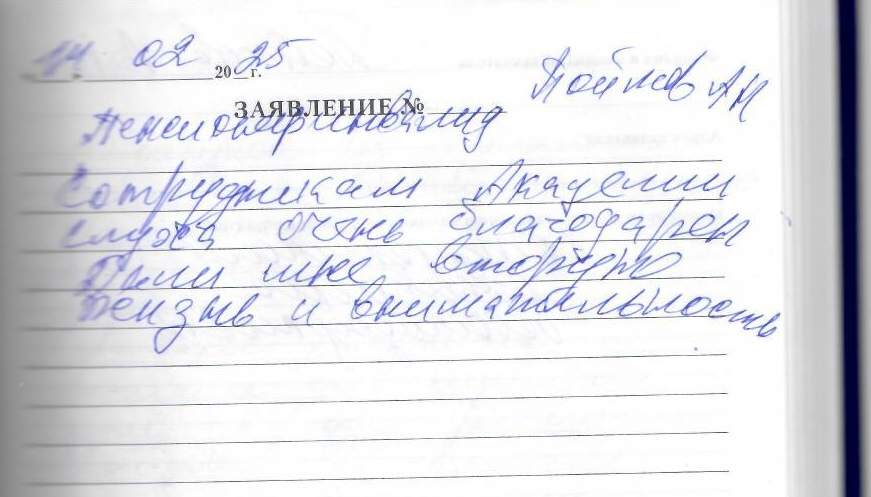 14 02 2025 г.
ЗАЯВЛЕНИЕ № Пойлов АН
Пенсионер инвалид
Сотрудникам Академии
слуха очень благодарен
Дали мне вторую
жизнь и внимательность